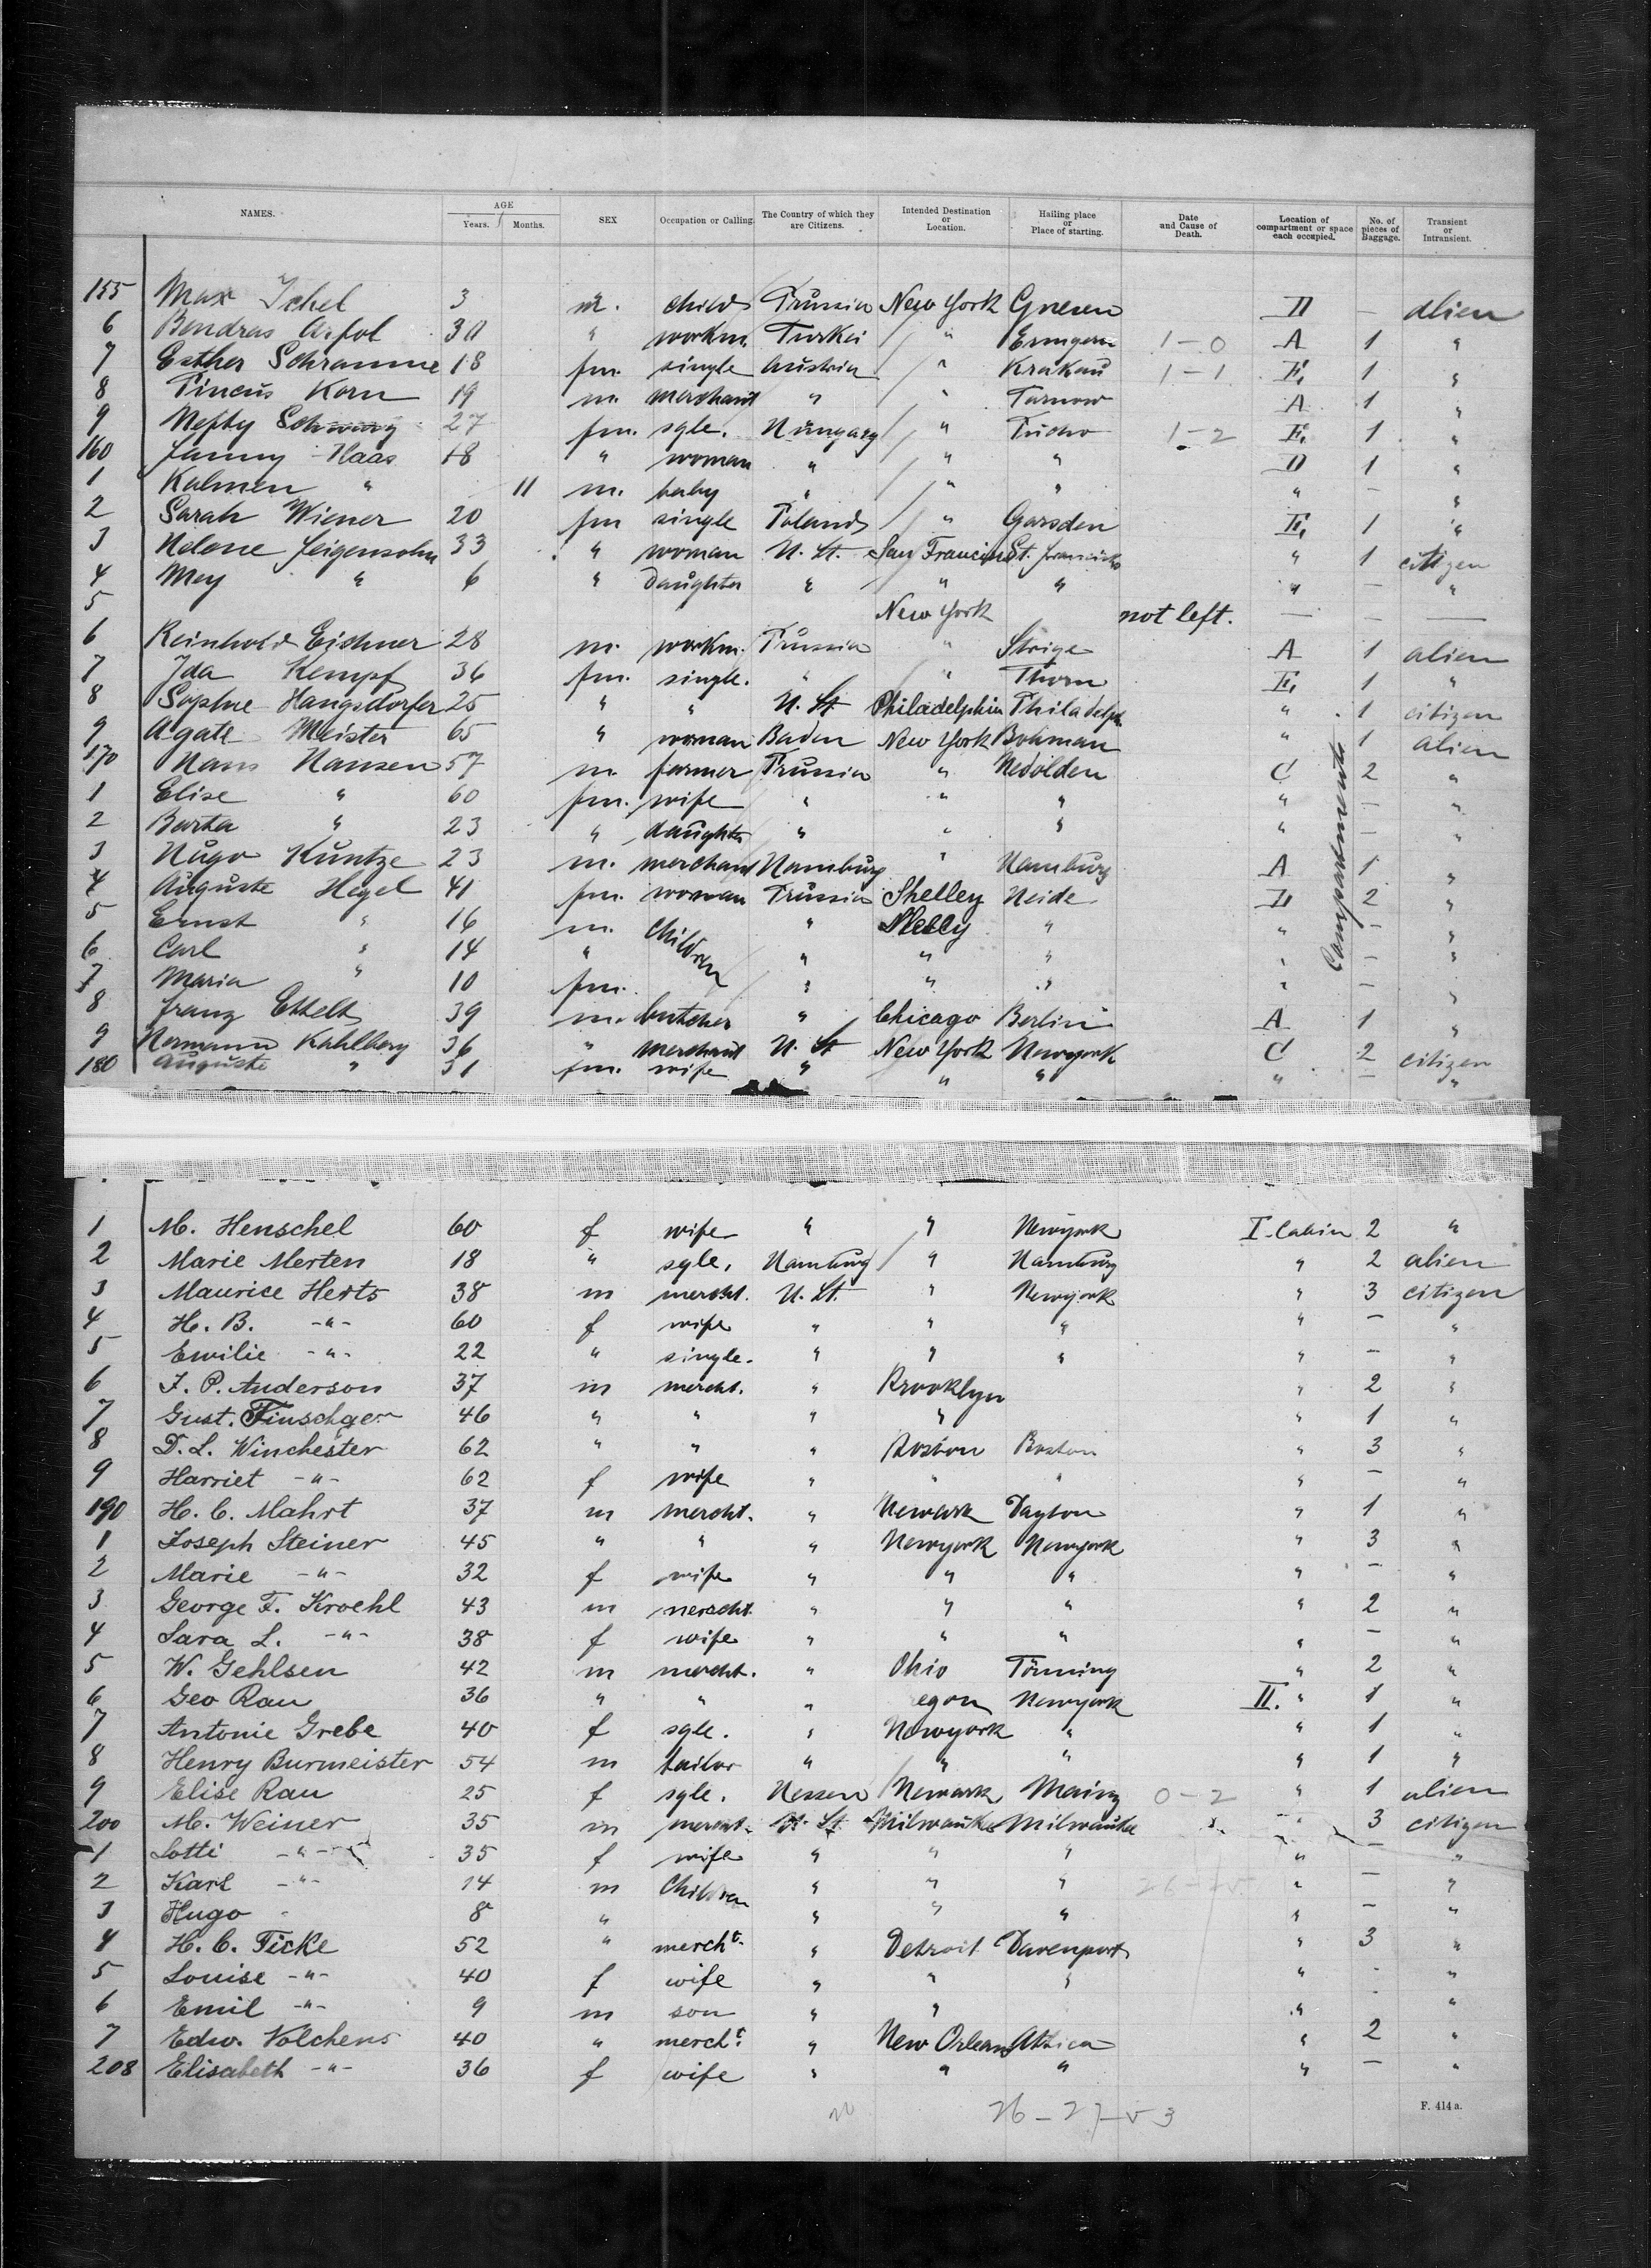 NAMES. AGE Years. Months. SEX Occupation or Calling. The Country of which they are Citizens. Intended Destination or Location. Hailing place or Place of starting. Date and Cause of Death. Location of compartment or space each occupied. No. of pieces of Baggage. Transient or Intransient.
155 Max Ichel 3 m. child Prussia New York Gnesen D – alien
6 Bendras Arfol 30 " workm. Turkei " 1–0 A 1 "
7 Esther Schramme 18 fm. single Austria " Krakau 1–1 E, 1 "
8 Pincus Korn 19 m. merchant " " Tarnow A 1 "
9 27 fm. sgle. Hungary " Tucho 1–2 E, 1 "
160 Fanny Haas 18 " woman " " " D 1 "
1 Kalmen " 11 m. baby " " " " – "
2 Sarah Wiener 20 fm single Poland " Garsden E, 1 "
3 Helene Feigensohn 33 " woman U. St. San Francisco St. Francisko " 1 citizen
4 Mey " 6 " daughter " " " " – "
5 New York not left. — – —
6 Reinhold Eichner 28 m. workm. Prussia " A 1 alien
7 Ida Kempf 36 fm. single. " " Thorn E, 1 "
8 Sophie Hangsdorfer 25 " " U. St. Philadelphia Philadelph " 1 citizen
9 Agate Meister 65 " woman Baden New York Bohman " 1 alien
170 Hans Hansen 57 m. farmer Prussia " Hedolden C 2 "
1 Elise " 60 fm. wife " " " " – "
2 Barta " 23 " daughter " " " " – "
3 Hugo Kuntze 23 m. merchant Hamburg " Hamburg A 1 "
4 Auguste Hegel 41 fm. woman Prussia Shelley Heide D 2 "
5 Ernst " 16 m. children " " " "
6 Carl " 14 " " " " " – "
7 Maria " 10 fm. " " " " – "
8 Franz Ettelt 39 m. butcher " Chicago Berlin A 1 "
9 Hermann Kahlberg 36 " merchant U. St New York Newyork C 2 citizen
180 Auguste " 31 fm. wife " " " " – "
Compartements
1 M. Henschel 60 f wife " " Newyork I. Cabin 2 "
2 Marie Merten 18 " sgle. Hamburg " Hamburg " 2 alien
3 Maurice Herts 38 m mercht. U. St. " Newyork " 3 citizen
4 H. B. -"- 60 f wife " " " " – "
5 Emilie -"- 22 " single. " " " " – "
6 J. P. Anderson 37 m mercht. " Brooklyn " 2 "
7 Gust. Finschger 46 " " " " " 1 "
8 D. L. Winchester 62 " " " Boston Boston " 3 "
9 Harriet -"- 62 f wife " " " " – "
190 H. C. Mahrt 37 m mercht. " Newark Dayton " 1 "
1 Joseph Steiner 45 " " " Newyork Newyork " 3 "
2 Marie -"- 32 f wife " " " " – "
3 George F. Kroehl 43 m mercht. " " " " 2 "
4 Sara L. -"- 38 f wife " " " " – "
5 W. Gehlsen 42 m mercht. " Ohio Tönning " 2 "
6 Geo Rau 36 " " " egon Newyork II. " 1 "
7 Antonie Grebe 40 f sgle. " Newyork " " 1 "
8 Henry Burmeister 54 m tailor " " " " 1 "
9 Elise Rau 25 f sgle. Hessen Newark Mainz 0–2 " 1 alien
200 M. Weiner 35 m mercht. U. St. Milwaukee Milwaukee " 3 citizen
1 Lotti -"- 35 f wife " " " " – "
2 Karl -"- 14 m Children " " " " – "
3 Hugo 8 " " " " " – "
4 H. C. Ficke 52 " mercht. " Detroit Davenport " 3 "
5 Louise -"- 40 f wife " " " " - "
6 Emil -"- 9 m son " " " - "
7 Edw. Volchens 40 " mercht. " New Orleans Attica " 2 "
208 Elisabeth -"- 36 f wife " " " " – "
F. 414 a.